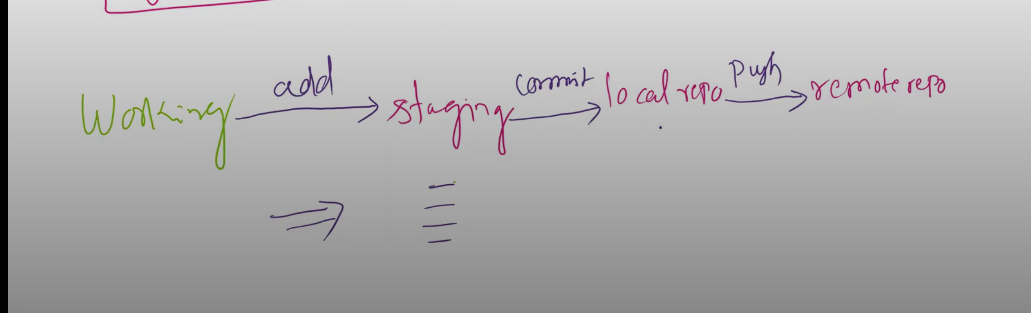 Working add staging commit local repo Push remote repo